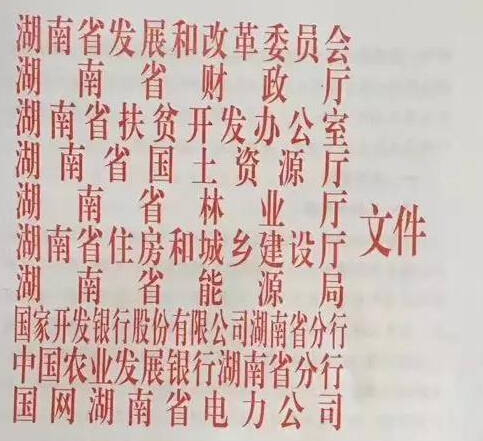 湖南省发展和改革委员会
湖南省财政厅
湖南省扶贫开发办公室
湖南省国土资源厅
湖南省林业厅
湖南省住房和城乡建设厅
湖南省能源局
国家开发银行股份有限公司湖南省分行
中国农业发展银行湖南省分行
国网湖南省电力公司
文件